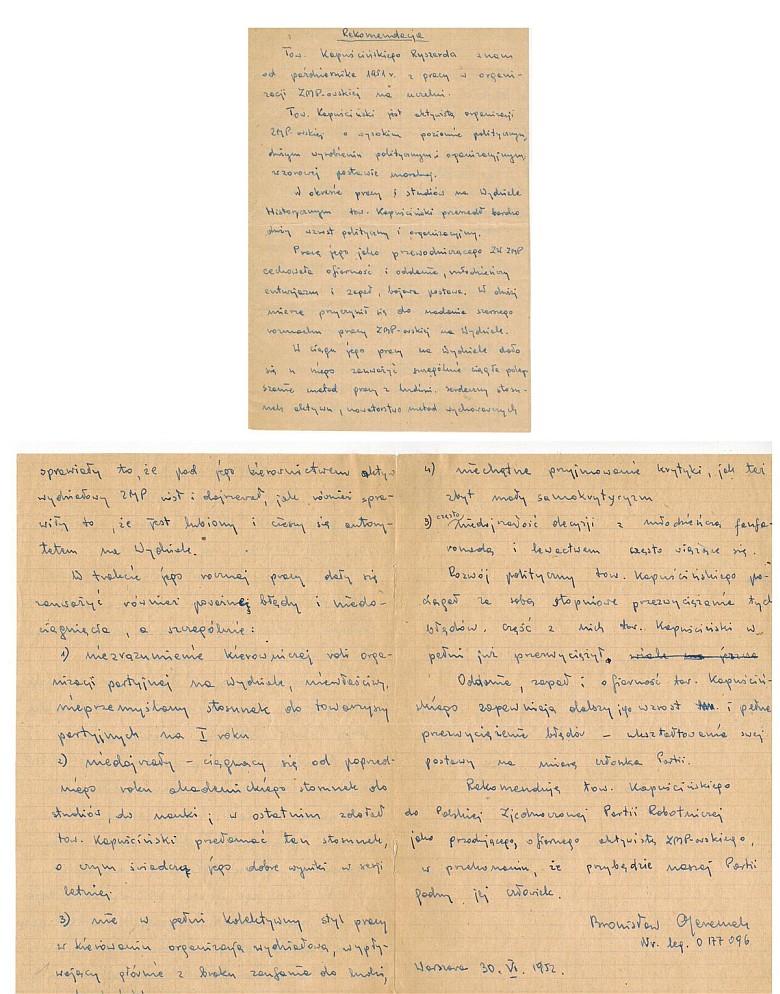 Rekomendacja
Tow. Kapuścińskiego Ryszarda znam
od października 1951 r. z pracy w organi-
zacji ZMP-owskiej na uczelni.
Tow. Kapuściński jest aktywistą organizacji
ZMP-owskiej o wysokim poziomie politycznym,
dużym wyrobieniu politycznym i organizacyjnym,
wzorowej postawie moralnej.
W okresie pracy i studiów na Wydziale
Historycznym tow. Kapuściński przeszedł bardzo
duży wzrost polityczny i organizacyjny.
Pracę jego jako przewodniczącego ZW ZMP
cechowała ofiarność i oddanie, młodzieńczy
entuzjazm i zapał, bojowa postawa. W dużej
mierze przyczynił się do nadania szerokiego
rozmachu pracy ZMP-owskiej na Wydziale.
W ciągu jego pracy na Wydziale dało
się u niego zauważyć szczególnie ciągłe polep-
szanie metod pracy z ludźmi. Serdeczny stosu-
nek aktywu, nowatorstwo metod wychowawczych
sprawiały to, że pod jego kierownictwem aktyw
wydziałowy ZMP rósł i dojrzewał, jak również spra-
wiły to, że jest lubiany i cieszy się autory-
tetem na Wydziale.
W trakcie jego rocznej pracy dały się
zauważyć również poważne błędy i niedo-
ciągnięcia, a szczególnie:
1) niezrozumienie kierowniczej roli orga-
nizacji partyjnej na Wydziale, niewłaściwy,
nieprzemyślany stosunek do towarzyszy
partyjnych na I roku
2) niedojrzały – ciągnący się od poprzed-
niego roku akademickiego stosunek do
studiów, do nauki; w ostatnim zdołał
tow. Kapuściński przełamać ten stosunek,
o czym świadczą jego dobre wyniki w sesji
letniej.
3) nie w pełni kolektywny styl pracy
w kierowaniu organizacją wydziałową, wypły-
wający głównie z braku zaufania do ludzi,
4) niechętne przyjmowanie krytyki, jak też
zbyt mały samokrytycyzm
5) często niedojrzałość decyzji z młodzieńczą fanfa-
ronadą i lewactwem często wiążące się.
Rozwój polityczny tow. Kapuścińskiego po-
ciągał za sobą stopniowe przezwyciężanie tych
błędów. część z nich tow. Kapuściński w
pełni już przezwyciężył.
Oddanie, zapał i ofiarność tow. Kapuściń-
skiego zapewniają dalszy jego wzrost i pełne
przezwyciężenie błędów – ukształtowania swej
postawy na miarę członka Partii.
Rekomenduję tow. Kapuścińskiego
do Polskiej Zjednoczonej Partii Robotniczej
jako przodującego, ofiarnego aktywistę ZMP-owskiego,
w przekonaniu, że przybędzie naszej Partii
godny jej człowiek.
Bronisław Geremek
Nr. leg. 0177096
Warszawa 30. VI. 1952.